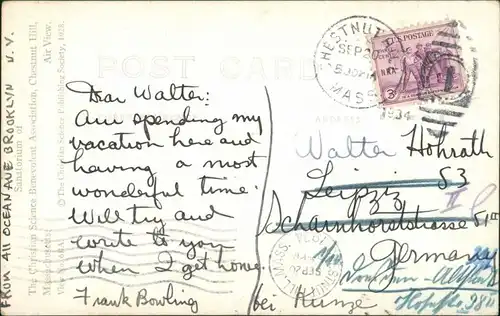 FROM 411 OCEAN AVE BROOKLYN N.Y.
Air View.
The Christian Science Benevolent Association, Chestnut Hill,
Sanatorium of
© The Christian Science Publishing Society, 1928.
POST CARD
Dear Walter:
Am spending my
vacation here and
having a most
wonderful time.
Will try and
write to you
when I get home.
Frank Bowling
CHESTNUT
SEP 20
5 PM
MASS.
1934
U.S. POSTAGE
3
Walter Hohrath
Leipzig S3
Scharnhorststrasse 51
Germany
bei Kunze
Dresden-Altstadt
MASS.